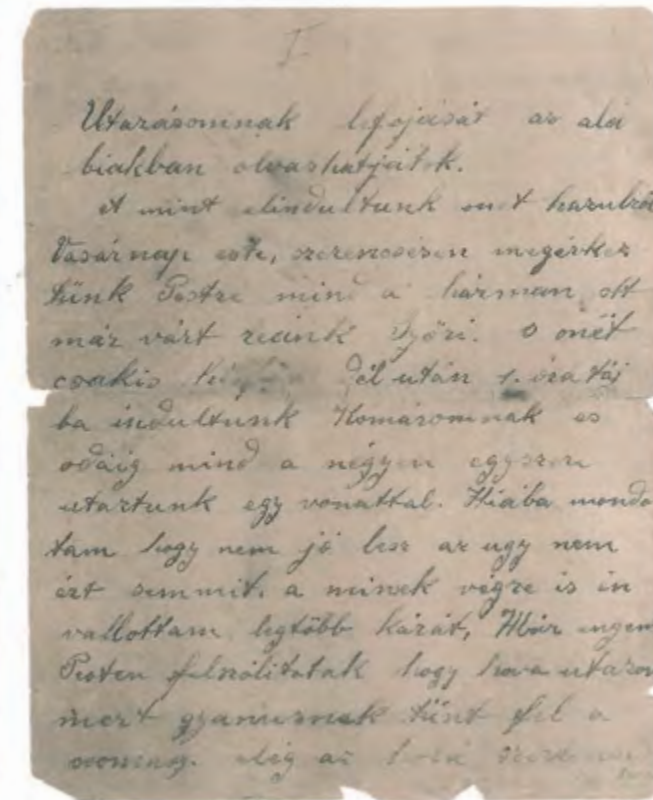 I.
Utazásomnak lefojását az alá
biakban olvashatjátok.
A mint elindultunk onét hazulról
Vasárnap este, szerencsésen megérkez
tünk Pestre mind a hárman, ott
már várt reánk Győri. S onét
csakis dél után 1. óra táj
ba indultunk Komáromnak es
odáig mind a négyen egyszere
utaztunk egy vonattal. Hiába mondo
tam hogy nem jó lesz az ugy nem
ért semmit, a minek végre is én
vallottam legtöbb kárát, Már engem
Pesten felszólitotak hogy hova utazom
mert gyanusnak tünt fel a
csomag. elég az